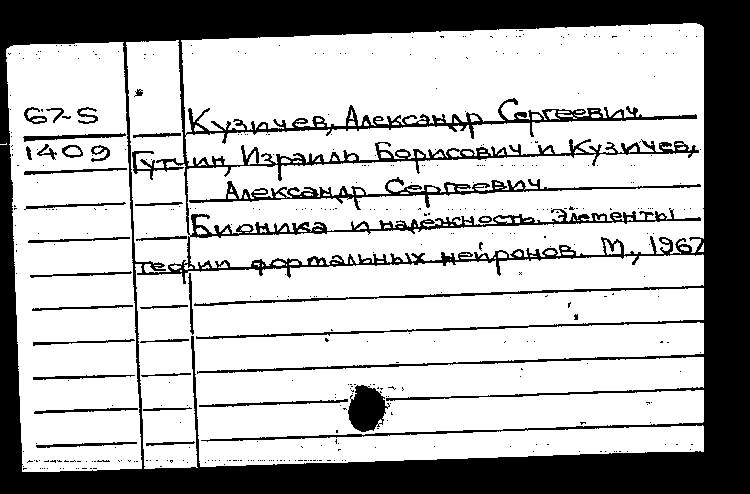 67-5 Кузичев, Александр Сергеевич.
1409 Гутчин, Израиль Борисович и Кузичев,
Александр Сергеевич.
Бионика и надёжность. Элементы
теории формальных нейронов. М., 1967